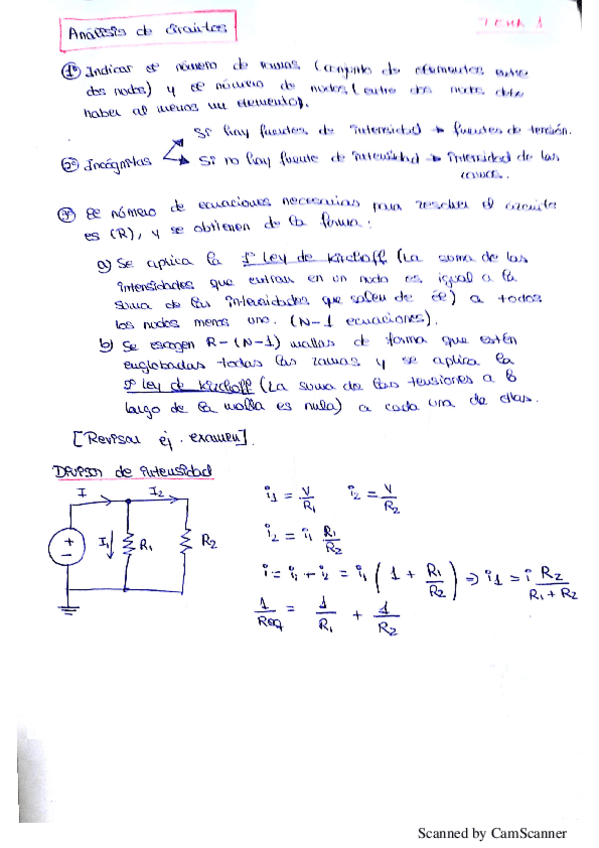 Análisis de Circuitos
TEMA 1
1º Indicar el número de ramas (conjunto de elementos entre
dos nodos) y el número de nodos (entre dos nodos debe
haber al menos un elemento).
Si hay fuentes de intensidad → fuentes de tensión.
2º Incógnitas
Si no hay fuente de intensidad → intensidad de las
ramas.
3º El número de ecuaciones necesarias para resolver el circuito
es (R), y se obtienen de la forma:
a) Se aplica la 1ª Ley de Kirchoff (La suma de las
intensidades que entran en un nodo es igual a la
suma de las intensidades que salen de él) a todos
los nodos menos uno. (N-1 ecuaciones).
b) Se escogen R-(N-1) mallas de forma que estén
englobadas todas las ramas y se aplica la
Ley de Kirchoff (La suma de las tensiones a lo
largo de la malla es nula) a cada una de ellas.
[Revisar ej. examen].
División de intensidad
I I2
+
−
I1 R1 R2
i1 = V/R1 i2 = V/R2
i2 = i1 R1/R2
i = i1 + i2 = i1 (1 + R1/R2) ⇒ i1 = i R2/(R1 + R2)
1/Req = 1/R1 + 1/R2
Scanned by CamScanner